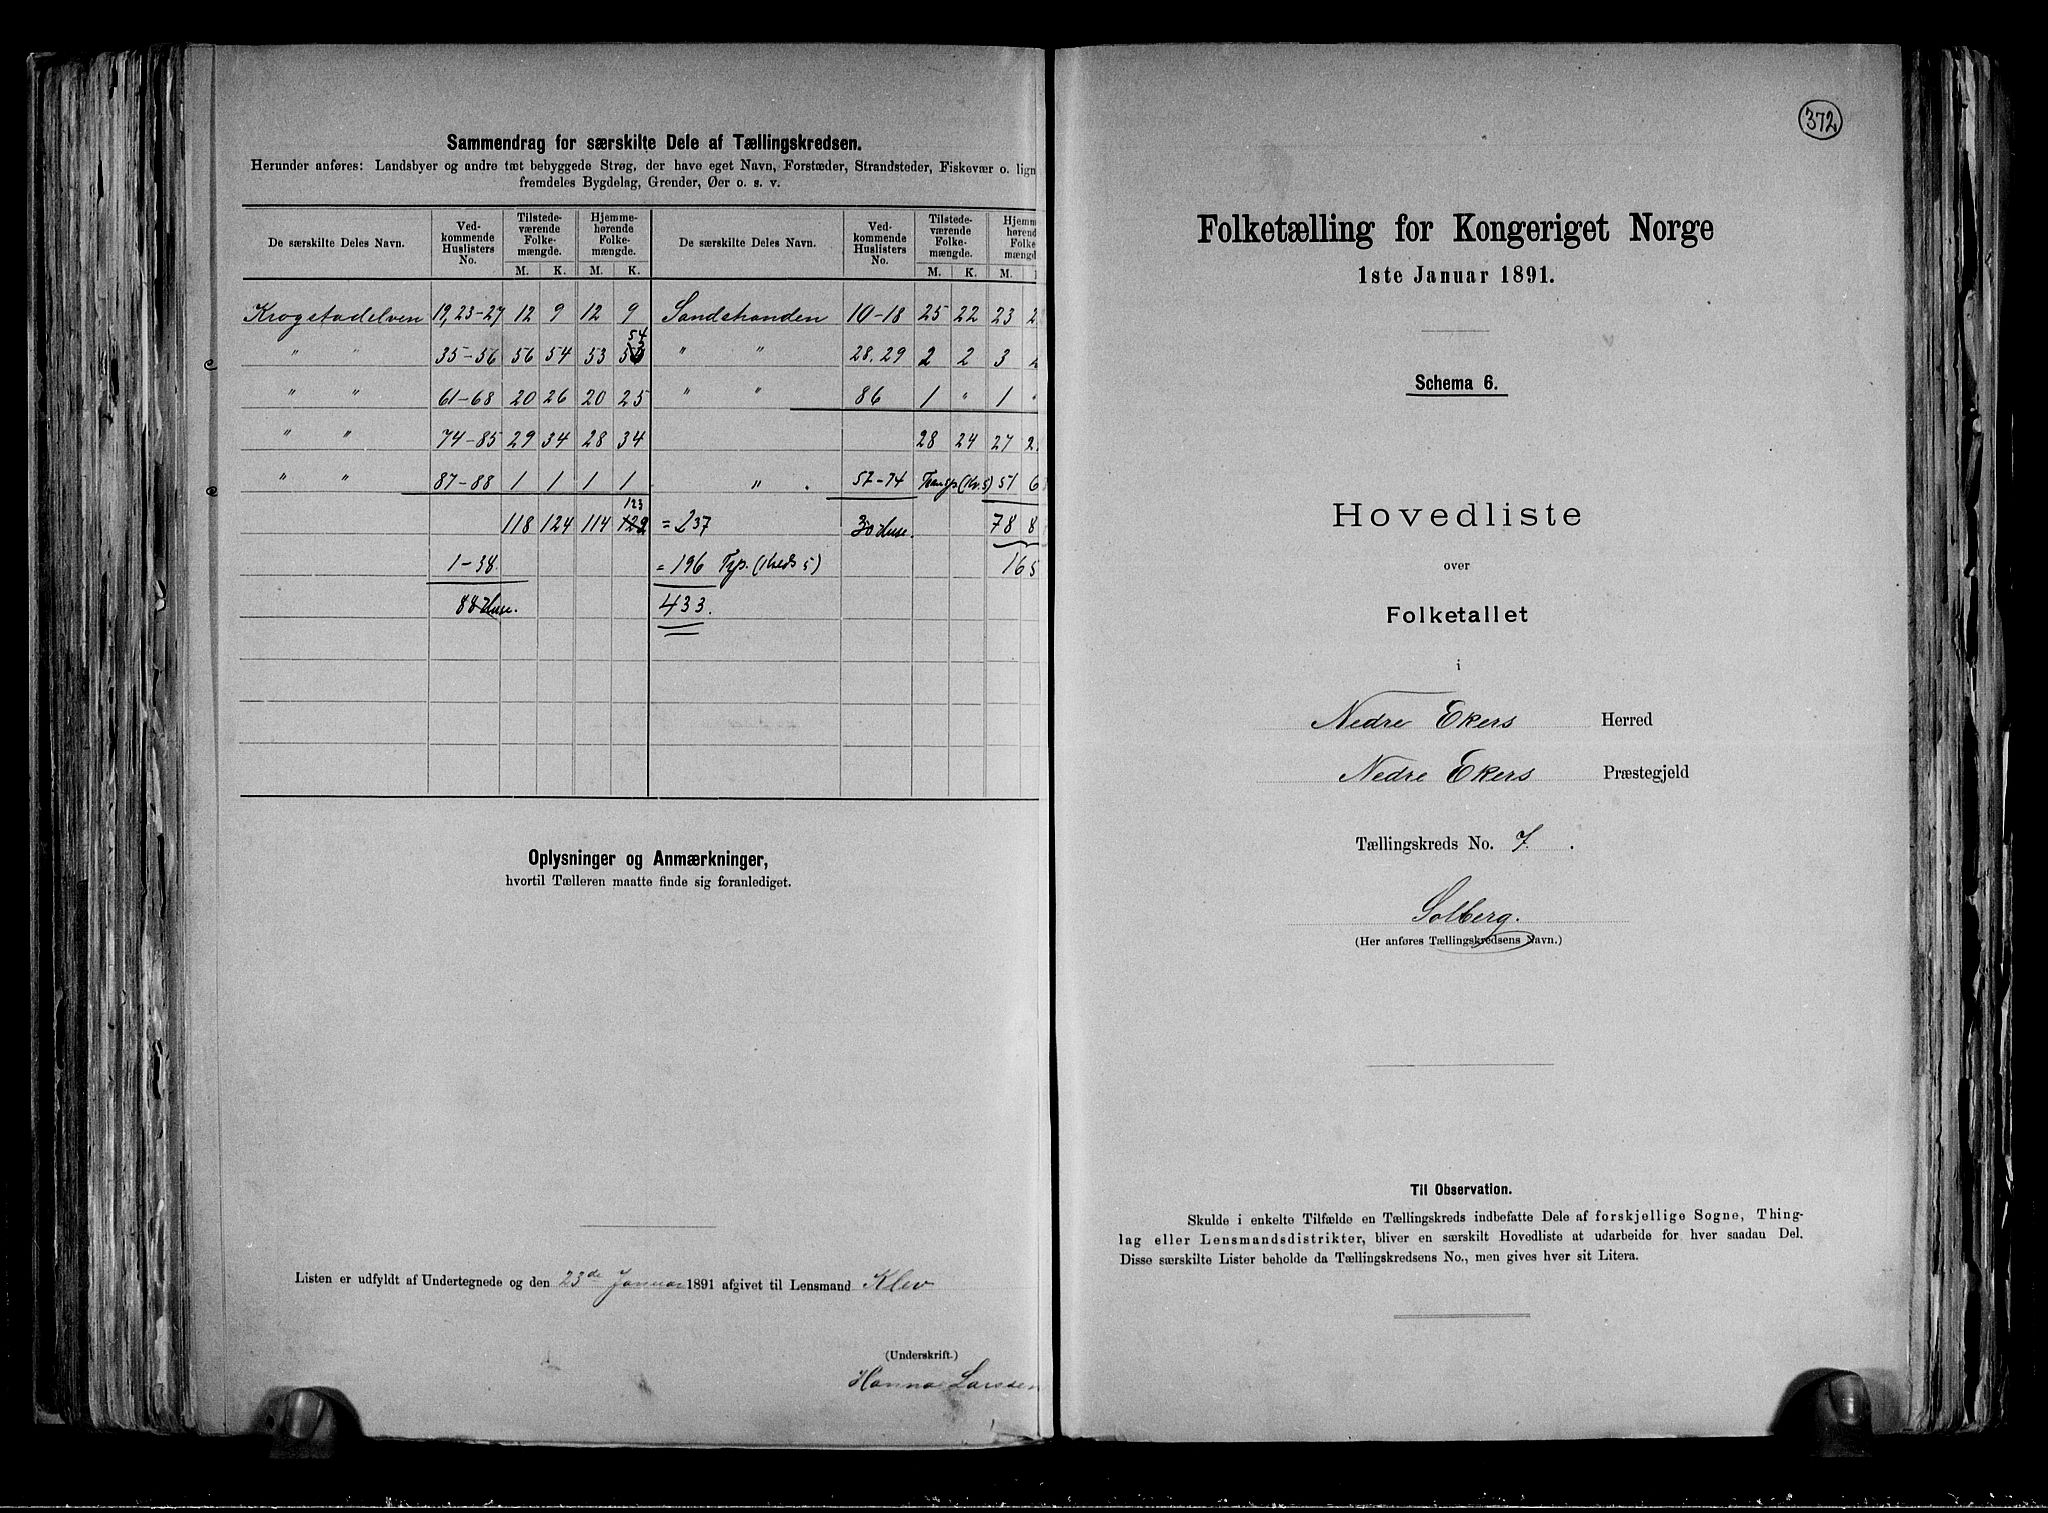 Sammendrag for særskilte Dele af Tællingskredsen.
Herunder anføres: Landsbyer og andre tæt bebyggede Strøg, der have eget Navn, Forstæder, Strandsteder, Fiskevær o. lign
fremdeles Bygdelag, Grender, Øer o. s. v.
De særskilte Deles Navn. Ved-kommende Huslisters No. Tilstede-værende Folke-mængde. Hjemme-hørende Folke-mængde. De særskilte Deles Navn. Ved-kommende Huslisters No. Tilstede-værende Folke-mængde. Hjemm hørend Folke mængd
M. K. M. K. M. K. M.
Krogstadelven 19, 23-27 12 9 12 9 Sandstranden 10-18 25 22 23 2
54
" " 35-56 56 54 53 53 " " 28. 29 2 2 3
" " 61-68 20 26 20 25 " " 86 1 " 1 "
" " 74-85 29 34 28 34 28 24 27 2
" " 87-88 1 1 1 1 " . 57-74 Transp (Kr. 5) 51 6
123
118 124 114 122 = 237 30 Huse. 78 8
1-38 = 196 Trp. (Kreds 5) 165
88 Huse. 433.
Oplysninger og Anmærkninger,
hvortil Tælleren maatte finde sig foranlediget.
Listen er udfyldt af Undertegnede og den 23de Januar 1891 afgivet til Lensmand Klev
(Underskrift.)
Hanna Larssen
372
Folketælling for Kongeriget Norge
1ste Januar 1891.
Schema 6.
Hovedliste
over
Folketallet
i
Nedre Ekers Herred
Nedre Ekers Præstegjeld
Tællingskreds No. 7.
Solberg.
(Her anføres Tællingskredsens Navn.)
Til Observation.
Skulde i enkelte Tilfælde en Tællingskreds indbefatte Dele af forskjellige Sogne, Thing-
lag eller Lensmandsdistrikter, bliver en særskilt Hovedliste at udarbeide for hver saadan Del.
Disse særskilte Lister beholde da Tællingskredsens No., men gives hver sit Litera.